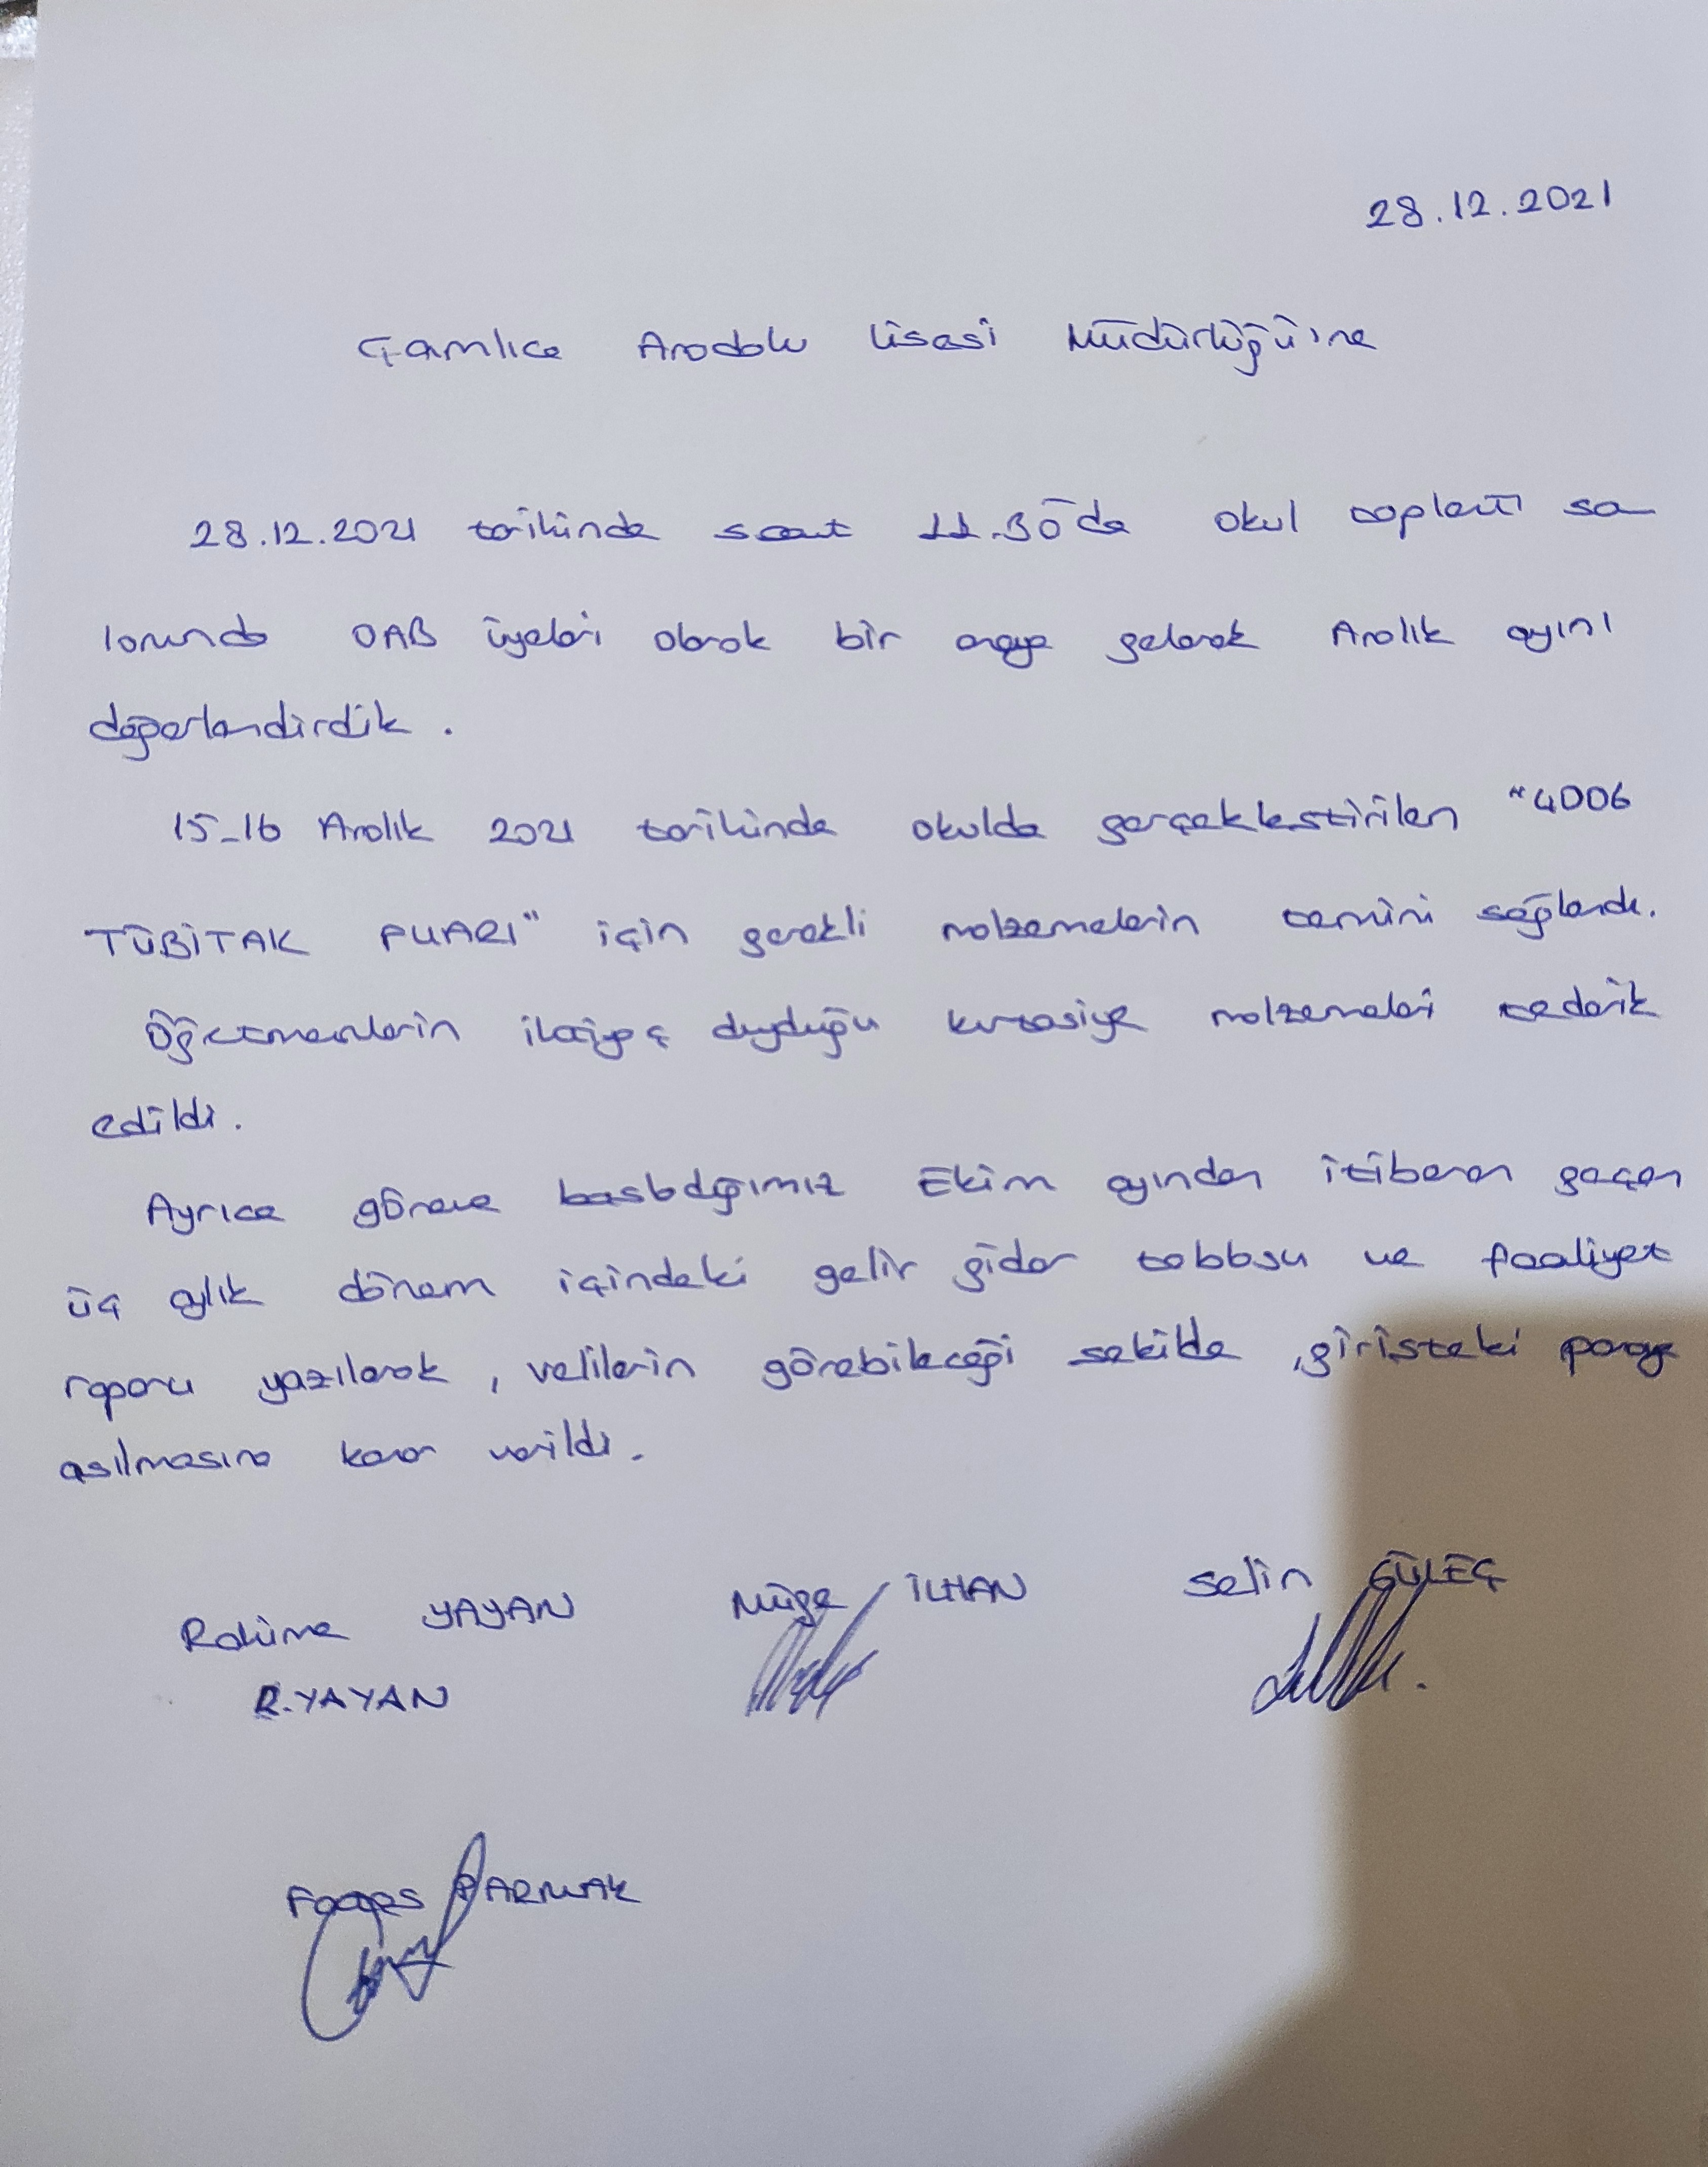 28.12.2021
Çamlıca Anadolu Lisesi Müdürlüğü'ne
28.12.2021 tarihinde saat 11.30'da okul toplantı sa
lonunda OAB üyeleri olarak bir araya gelerek Aralık ayını
değerlendirdik.
15-16 Aralık 2021 tarihinde okulda gerçekleştirilen "4006
TÜBİTAK FUARI" için gerekli malzemelerin temini sağlandı.
Öğretmenlerin ihtiyaç duyduğu kırtasiye malzemeleri tedarik
edildi.
Ayrıca göreve başladığımız Ekim ayından itibaren geçen
üç aylık dönem içindeki gelir gider tablosu ve faaliyet
raporu yazılarak, velilerin görebileceği şekilde, girişteki panoya
asılmasına karar verildi.
Rahime YAYAN Müge İLHAN Selin GÜLEÇ
R.YAYAN
PARMAK